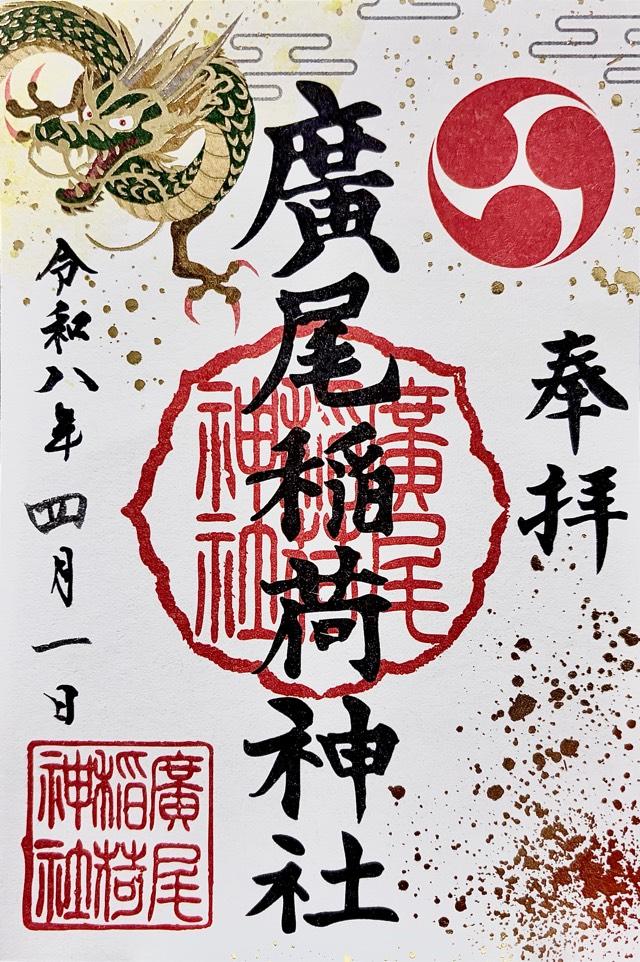 奉拝
廣尾稲荷神社
廣尾
稲荷
神社
令和八年四月一日
廣尾
稲荷
神社